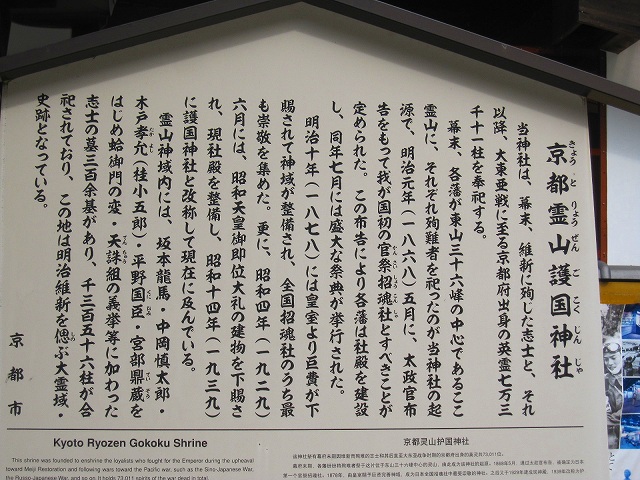 京都霊山護国神社
きょうとりょうぜんごこくじんじゃ
当神社は、幕末、維新に殉じた志士と、それ
以降、大東亜戦に至る京都府出身の英霊七万三
千十一柱を奉祀する。
幕末、各藩が東山三十六峰の中心であるここ
霊山に、それぞれ殉難者を祀ったのが当神社の起
源で、明治元年(一八六八)五月に、太政官布
告をもって我が国初の官祭招魂社とすべきことが
定められた。この布告により各藩は社殿を建設
し、同年七月には盛大な祭典が挙行された。
明治十年(一八七八)には皇室より巨費が下
賜されて神域が整備され、全国招魂社のうち最
も崇敬を集めた。更に、昭和四年(一九二九)
六月には、昭和天皇御即位大礼の建物を下賜さ
れ、現社殿を整備し、昭和十四年(一九三九)
に護国神社と改称して現在に及んでいる。
霊山神域内には、坂本龍馬・中岡慎太郎・
木戸孝允(桂小五郎)・平野国臣・宮部鼎蔵を
はじめ蛤御門の変・天誅組の義挙等に加わった
志士の墓三百余基があり、千三百五十六柱が合
祀されており、この地は明治維新を偲ぶ大霊域、
史跡となっている。
京都市
Kyoto Ryozen Gokoku Shrine
This shrine was founded to enshrine the loyalists who fought for the Emperor during the upheaval
toward Meiji Restoration and following wars toward the Pacific war, such as the Sino-Japanese War,
the Russo-Japanese War, and so on. It holds 73,011 spirits of the war dead in total.
京都灵山护国神社